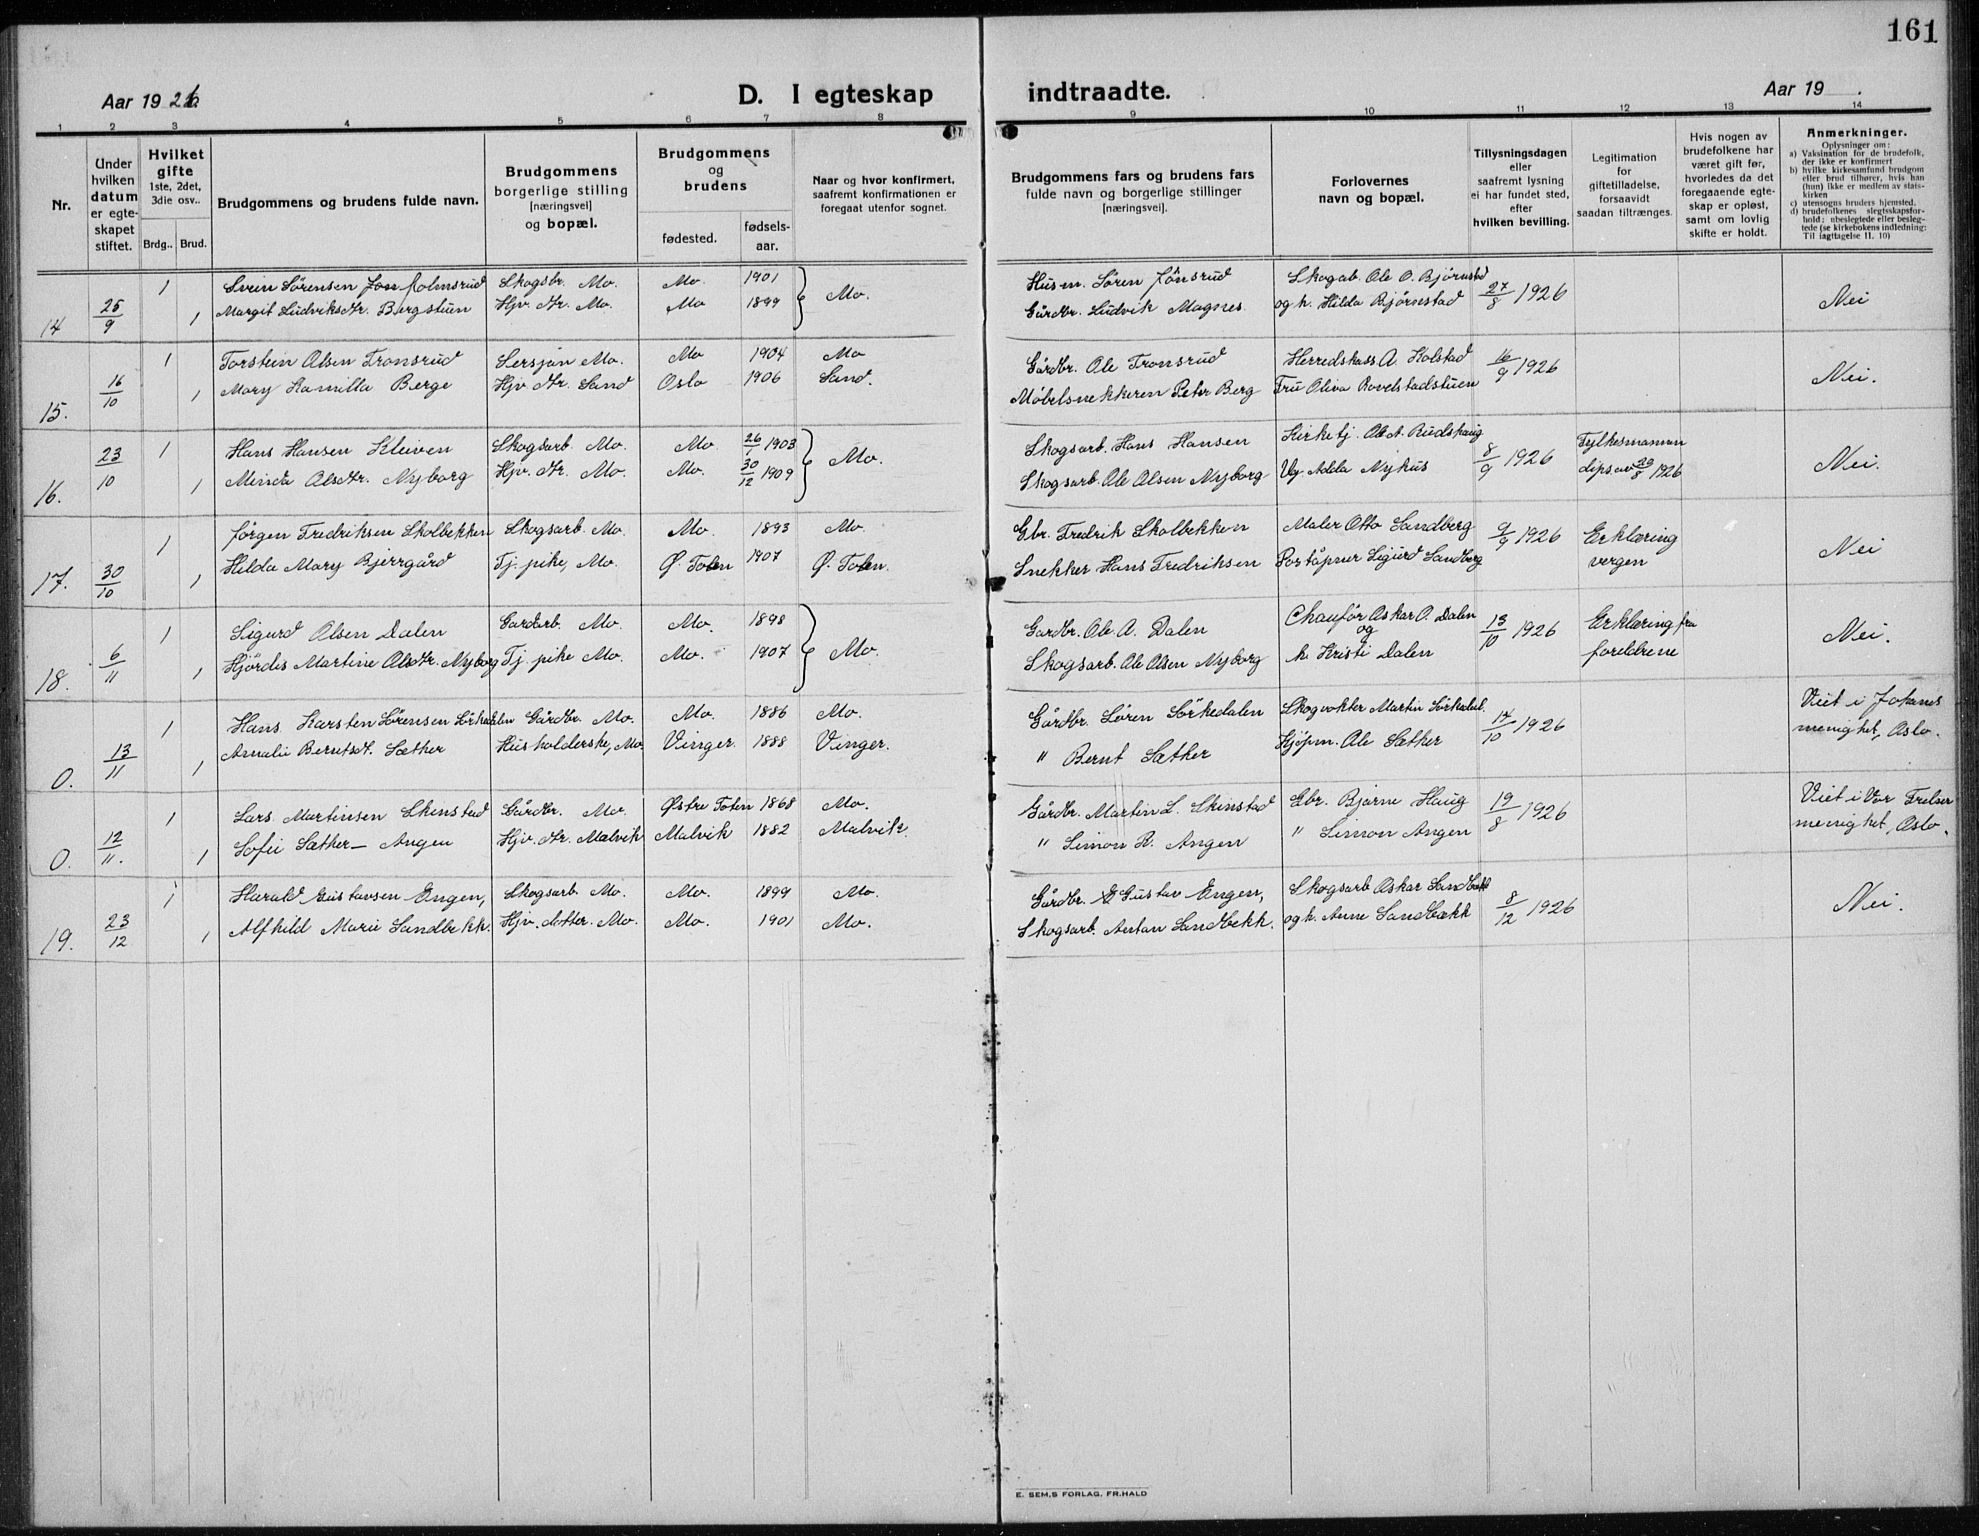 161
Aar 1926.
D. I egteskap indtraadte.
Aar 19 .
1 2 3 4 5 6 7 8 9 10 11 12 13 14
Nr.
Under
hvilken
datum
er egte-
skapet
stiftet.
Hvilket
gifte
1ste, 2det,
3die osv..
Brdg.. Brud.
Brudgommens og brudens fulde navn.
Brudgommens
borgerlige stilling
[næringsvei]
og bopæl.
Brudgommens
og
brudens
fødested.
fødsels-
aar.
Naar og hvor konfirmert,
saafremt konfirmationen er
foregaat utenfor sognet.
Brudgommens fars og brudens fars
fulde navn og borgerlige stillinger
[næringsvei].
Forlovernes
navn og bopæl.
Tillysningsdagen
eller
saafremt lysning
ei har fundet sted,
efter
hvilken bevilling.
Legitimation
for
giftetilladelse,
forsaavidt
saadan tiltrænges.
Hvis nogen av
brudefolkene har
været gift før,
hvorledes da det
foregaaende egte-
skap er opløst,
samt om lovlig
skifte er holdt.
Anmerkninger.
Oplysninger om:
a) Vaksination for de brudefolk,
der ikke er konfirmert
b) hvilke kirkesamfund brudgom
eller brud tilhører, hvis han
(hun) ikke er medlem av stats-
kirken
c) utensogns bruders hjemsted.
d) brudefolkenes slegtsskapsfor-
hold: ubeslegtede eller besleg-
tede (se kirkebokens indledning:
Til iagttagelse II. 10)
14 25/9 1 Svein Sørensen Skogsbr. Mo. Mo. 1901 Mo. Husm. Søren Jønsrud Skogab. Ole O. Bjørnstad 27/8 1926 Nei
1 Margit Ludviksdtr. Bergstuen Hjv. dtr. Mo. Mo 1899 Gårdbr. Ludvik Magnes og h. Hilda Bjørnstad
15. 16/10 1 Torstein Olsen Tronsrud Sersjan Mo. Mo 1904 Mo Gårdbr. Ole Tronsrud Herredskass A. Kolstad 16/9 1926 Nei.
1 Mary Kamilla Berge Hjv. dtr. Sand Oslo 1906 Sand. Møbelsnekkeren Peter Berg Fru Oliva Rovelstadstuen
16. 23/10 1 Hans Hansen Kleiven Skogsarb. Mo. Mo. 26/1 1903 Mo. Skogsarb. Hans Hansen Kirketj. Ole A. Rudshaug 8/9 1926 Fylkesmannen Nei.
1 Minda Olsdtr. Nyborg Hjv. dtr. Mo. Mo. 30/12 1909 Skogsarb. Ole Olsen Nyborg Vg. Adda Nyhus dips av 20/8 1926
17. 30/10 1 Jørgen Fredriksen Skolbekken Skogsarb. Mo. Mo. 1893 Mo. Gbr. Fredrik Skolbekken Maler Otto Sandberg 9/9 1926 Erklæring Nei
1 Hilda Mary Bjerrgård Tj. pike, Mo. Ø. Toten 1907 Ø. Toten. Snekker Hans Fredriksen Sigurd Sandberg vergen
18. 6/11 1 Sigurd Olsen Dalen Gardarb. Mo. Mo. 1898 Mo. Gardbr. Ole A. Dalen Chauför Oskar O. Dalen og 13/10 1926 Erklæring fra Nei.
1 Hjördis Martine Olsdtr. Nyborg Tj. pike Mo. Mo. 1907 Skogsarb. Ole Olsen Nyborg h. Kristi Dalen foreldrene
0. 13/11 1 Hans Karsten Sørensen Sörkedalen Gårdbr. Mo. Mo. 1886 Mo. Gårdbr. Søren Sörkedalen Skogvokter Martin Sörkedal. 14/10 1926 Viet i Johannes
1 Amalie Berntsdt. Sæther Husholderske, Mo. Vinger. 1888 Vinger. " Bernt Sæther Kjøpm. Ole Sæther menighet, Oslo.
0. 12/11. 1 Lars Martinsen Skinstad Gårdbr. Mo. Østre Toten 1868 Mo. Gårdbr. Martin L. Skinstad Gbr. Bjarne Haug 19/8 1926 Viet i Vor Frelser
1 Sofie Sæther - Angen Hjv. dtr. Malvik Malvik 1882 Malvik. " Simon R. Angen " Simon Angen menighet, Oslo.
19. 23/12 1 Harald Gustavsen Engen, Skogsarb. Mo. Mo. 1899 Mo. Gårdbr. Gustav Engen, Skogsarb Oskar Sandbekk 8/12 1926 Nei.
1 Alfhild Marie Sandbekk. Hjv. datter. Mo. Mo. 1901 Mo. Skogsarb. Antan Sandbekk. og h. Anne Sandbækk
E. SEM,S FORLAG, FR.HALD